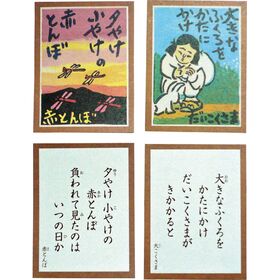 夕やけ
小やけの
赤とんぼ
赤とんぼ
大きな
ふくろを
かたに
かけ
だいこくさま
夕やけ 小やけの
赤とんぼ
負われて見たのは
いつの日か
赤とんぼ
大きなふくろを
かたにかけ
だいこくさまが
きかかると
大こくさま